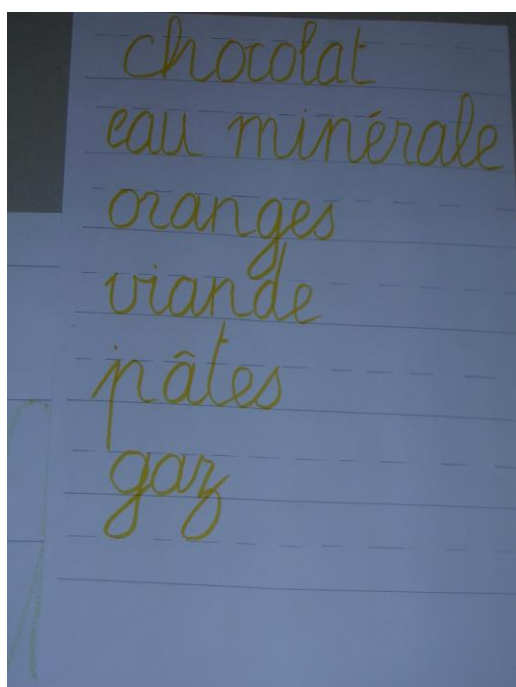 chocolat
eau minérale
oranges
viande
pâtes
gaz